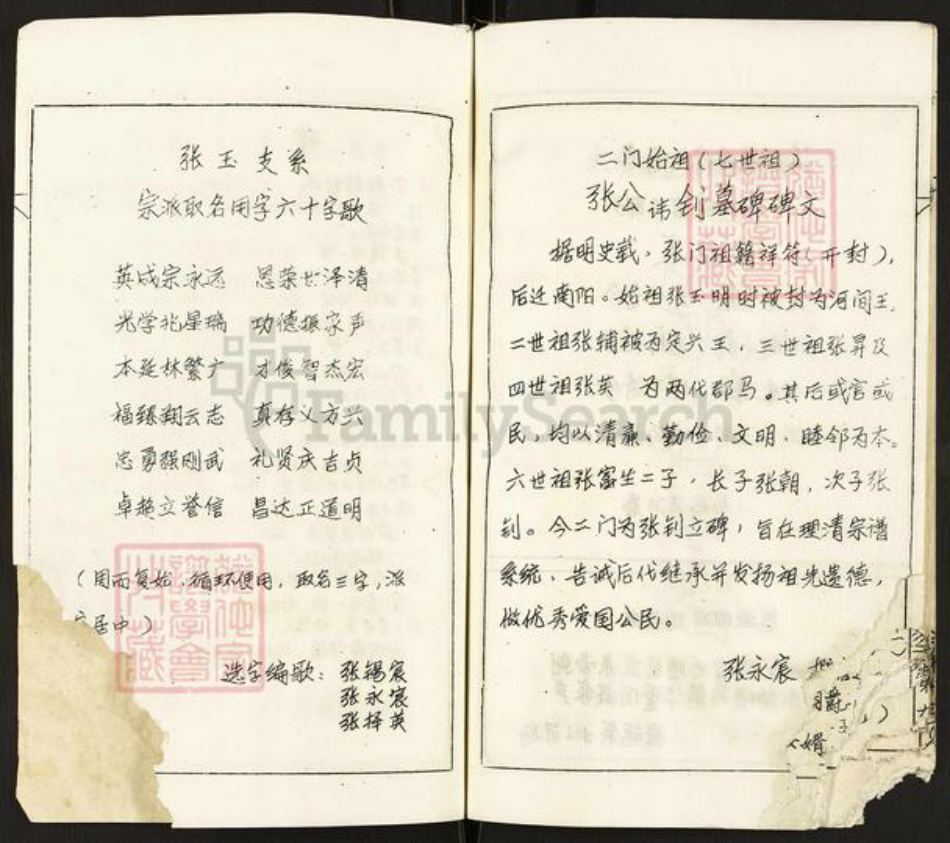 张玉支系
宗派取名用字六十字歌
英成宗永远 恩荣世泽清
光学兆星瑞 功德振家声
本延林繁广 才俊智杰宏
福臻翔云志 真存义方兴
忠勇强刚武 礼贤庆吉贞
卓越立誉信 昌达正道明
(周而复始,循环使用,取名三字,派
字居中)
选字编歌:张锡宸
张永宸
张择英
二门始祖(七世祖)
张公讳钊墓碑碑文
据明史载,张门祖籍祥符(开封),
后迁南阳。始祖张玉明时被封为河间王,
二世祖张辅被为定兴王,三世祖张昇及
四世祖张英 为两代郡马。其后或官或
民,均以清廉、勤俭、文明、睦邻为本。
六世祖张富生二子,长子张朝,次子张
钊。今二门为张钊立碑,旨在理清宗谱
系统、告诫后代继承并发扬祖先遗德,
做优秀爱国公民。
张永宸
婿
FamilySearch